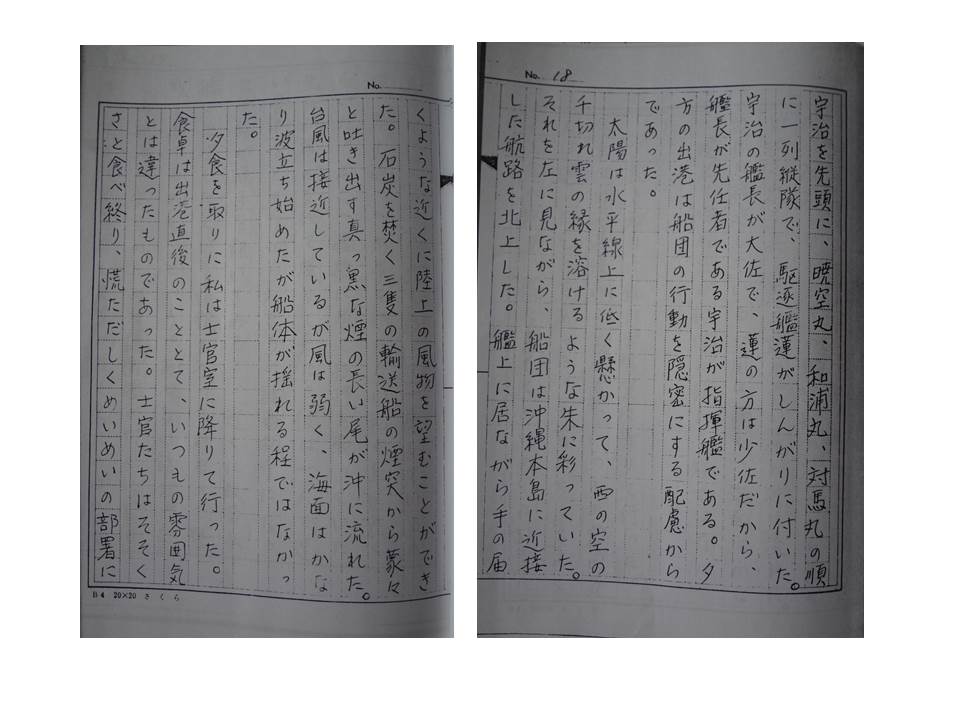 No. 18
宇治を先頭に、暁空丸、和浦丸、対馬丸の順
に一列縦隊で、駆逐艦蓮がしんがりに付いた。
宇治の艦長が大佐で、蓮の方は少佐だから、
艦長が先任者である宇治が指揮艦である。夕
方の出港は船団の行動を隠密にする配慮から
であった。
太陽は水平線上に低く懸かって、西の空の
千切れ雲の縁を溶けるような朱に彩っていた。
それを左に見ながら、船団は沖縄本島に近接
した航路を北上した。艦上に居ながら手の届
No.
くような近くに陸上の風物を望むことができ
た。石炭を焚く三隻の輸送船の煙突から蒙々
と吐き出す真っ黒な煙の長い尾が沖に流れた。
台風は接近しているが風は弱く、海面はかな
り波立ち始めたが船体が揺れる程ではなかっ
た。
夕食を取りに私は士官室に降りて行った。
食卓は出港直後のこととて、いつもの雰囲気
とは違ったものであった。士官たちはそそく
さと食べ終り、慌ただしくめいめいの部署に
B4 20×20 さくら